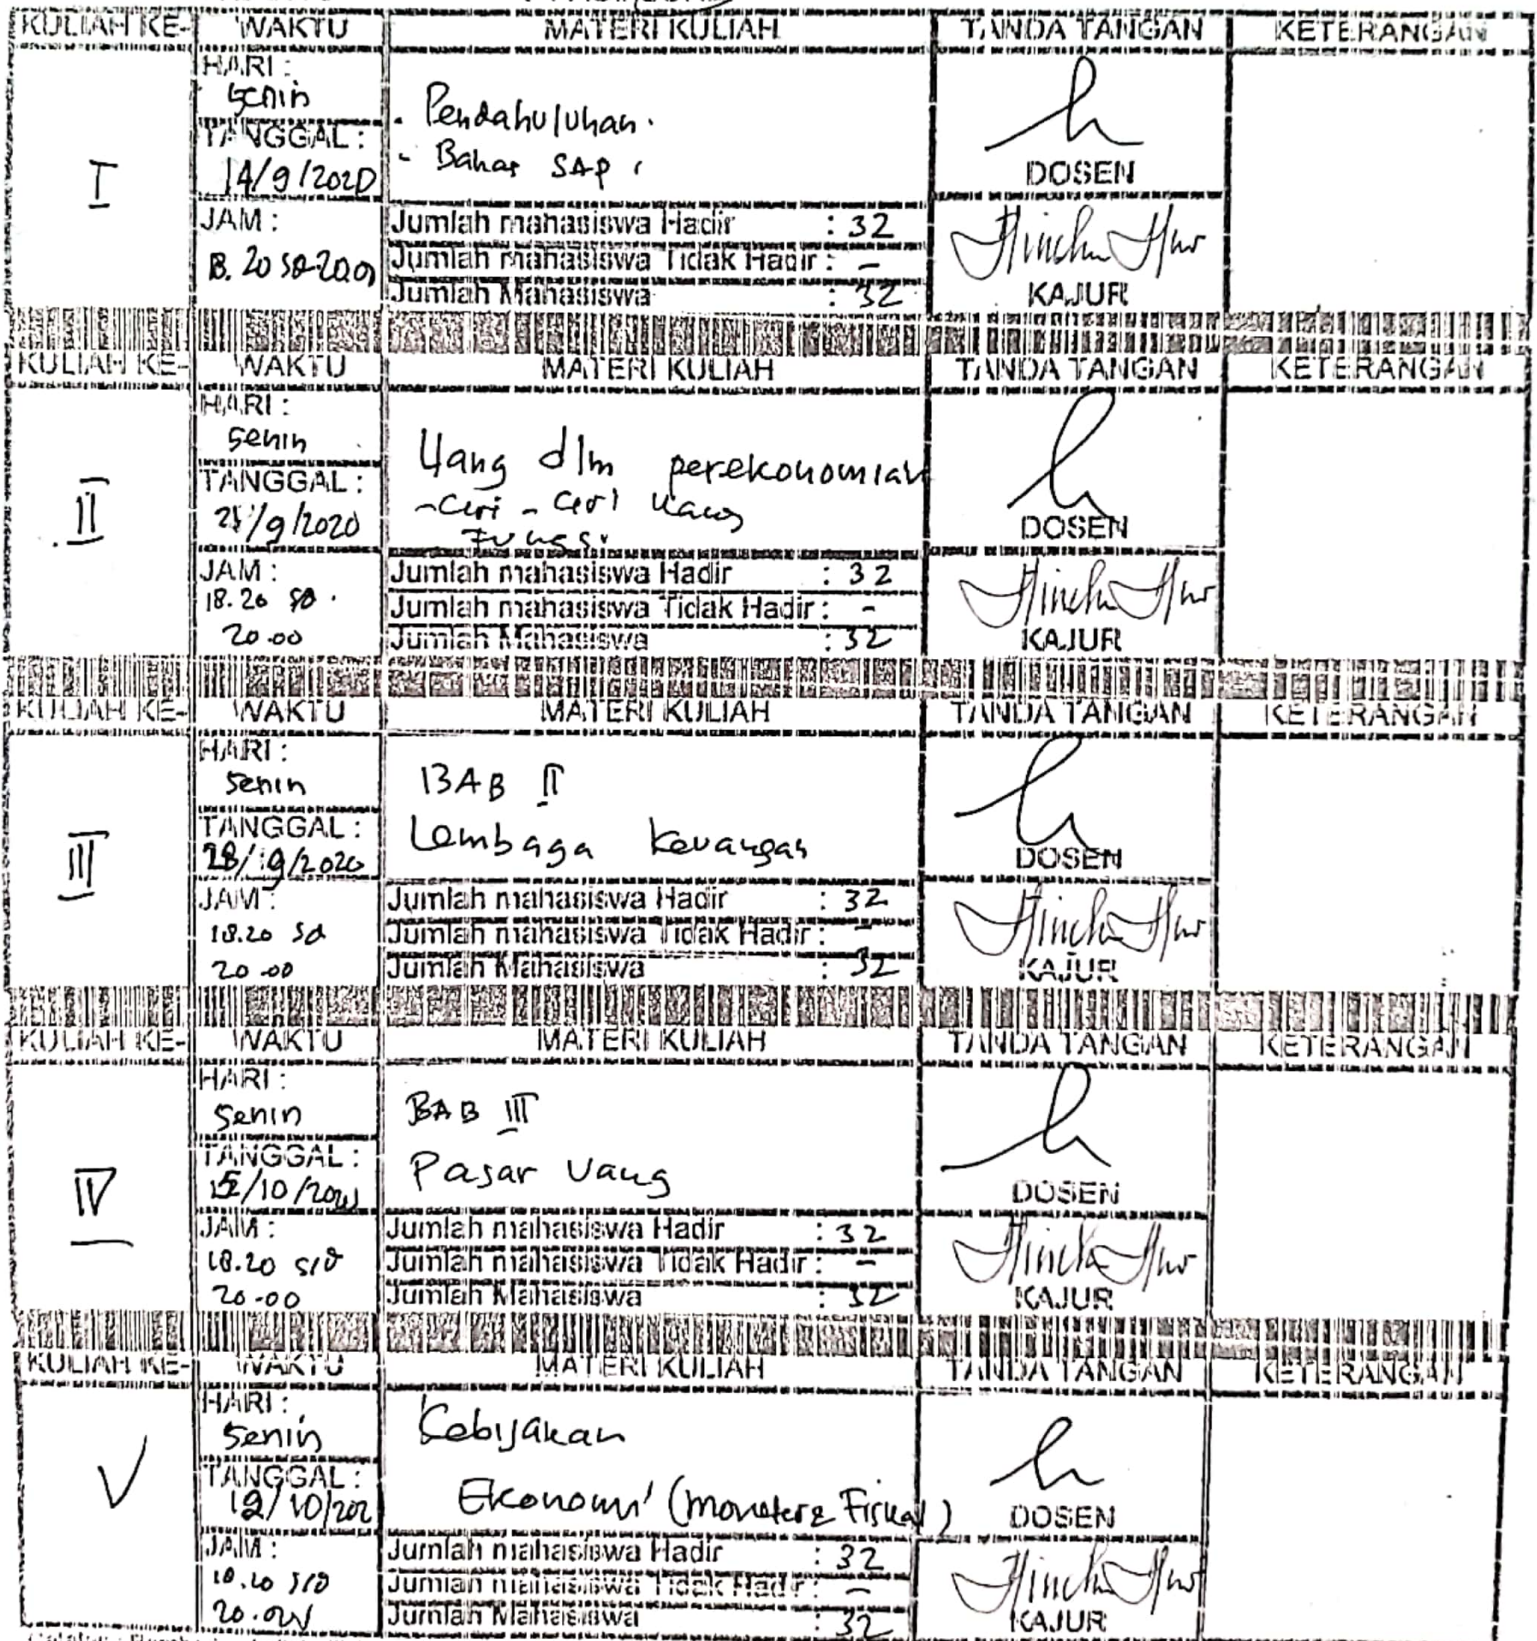 KULIAH KE- WAKTU MATERI KULIAH TANDA TANGAN KETERANGAN
I
HARI :
Senin
TANGGAL :
14/9/2020
JAM :
18.20 sd 20.00
- Pendahuluhan.
- Bahas SAP
Jumlah mahasiswa Hadir : 32
Jumlah mahasiswa Tidak Hadir : -
Jumlah Mahasiswa : 32
DOSEN
KAJUR
KULIAH KE- WAKTU MATERI KULIAH TANDA TANGAN KETERANGAN
II
HARI :
Senin
TANGGAL :
21/9/2020
JAM :
18.20 sd.
20.00
Uang dlm perekonomian
- Ciri - Ciri Uang
Fungsi
Jumlah mahasiswa Hadir : 32
Jumlah mahasiswa Tidak Hadir : -
Jumlah Mahasiswa : 32
DOSEN
KAJUR
KULIAH KE- WAKTU MATERI KULIAH TANDA TANGAN KETERANGAN
III
HARI :
Senin
TANGGAL :
28/9/2020
JAM :
18.20 sd
20.00
BAB II
Lembaga Keuangan
Jumlah mahasiswa Hadir : 32
Jumlah mahasiswa Tidak Hadir : -
Jumlah Mahasiswa : 32
DOSEN
KAJUR
KULIAH KE- WAKTU MATERI KULIAH TANDA TANGAN KETERANGAN
IV
HARI :
Senin
TANGGAL :
JAM :
18.20 s/d
20-00
BAB III
Pasar Uang
Jumlah mahasiswa Hadir : 32
Jumlah mahasiswa Tidak Hadir : -
Jumlah Mahasiswa : 32
DOSEN
KAJUR
KULIAH KE- WAKTU MATERI KULIAH TANDA TANGAN KETERANGAN
V
HARI :
Senin
TANGGAL :
12/10/202
JAM :
18.20 s/d
20.00
Kebijakan
Ekonomi (Moneter & Fiskal)
Jumlah mahasiswa Hadir : 32
Jumlah mahasiswa Tidak Hadir : -
Jumlah Mahasiswa : 32
DOSEN
KAJUR